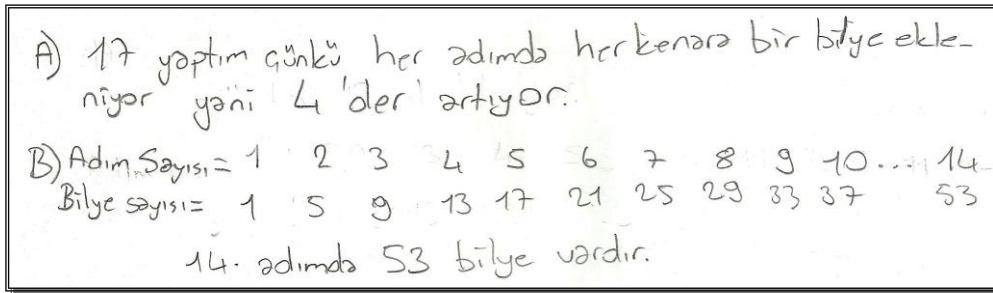 A) 17 yaptım çünkü her adımda her kenara bir bilye ekle-
niyor yani 4'der artıyor.
B) Adım Sayısı = 1 2 3 4 5 6 7 8 9 10... 14
Bilye sayısı = 1 5 9 13 17 21 25 29 33 37 53
14. adımda 53 bilye vardır.